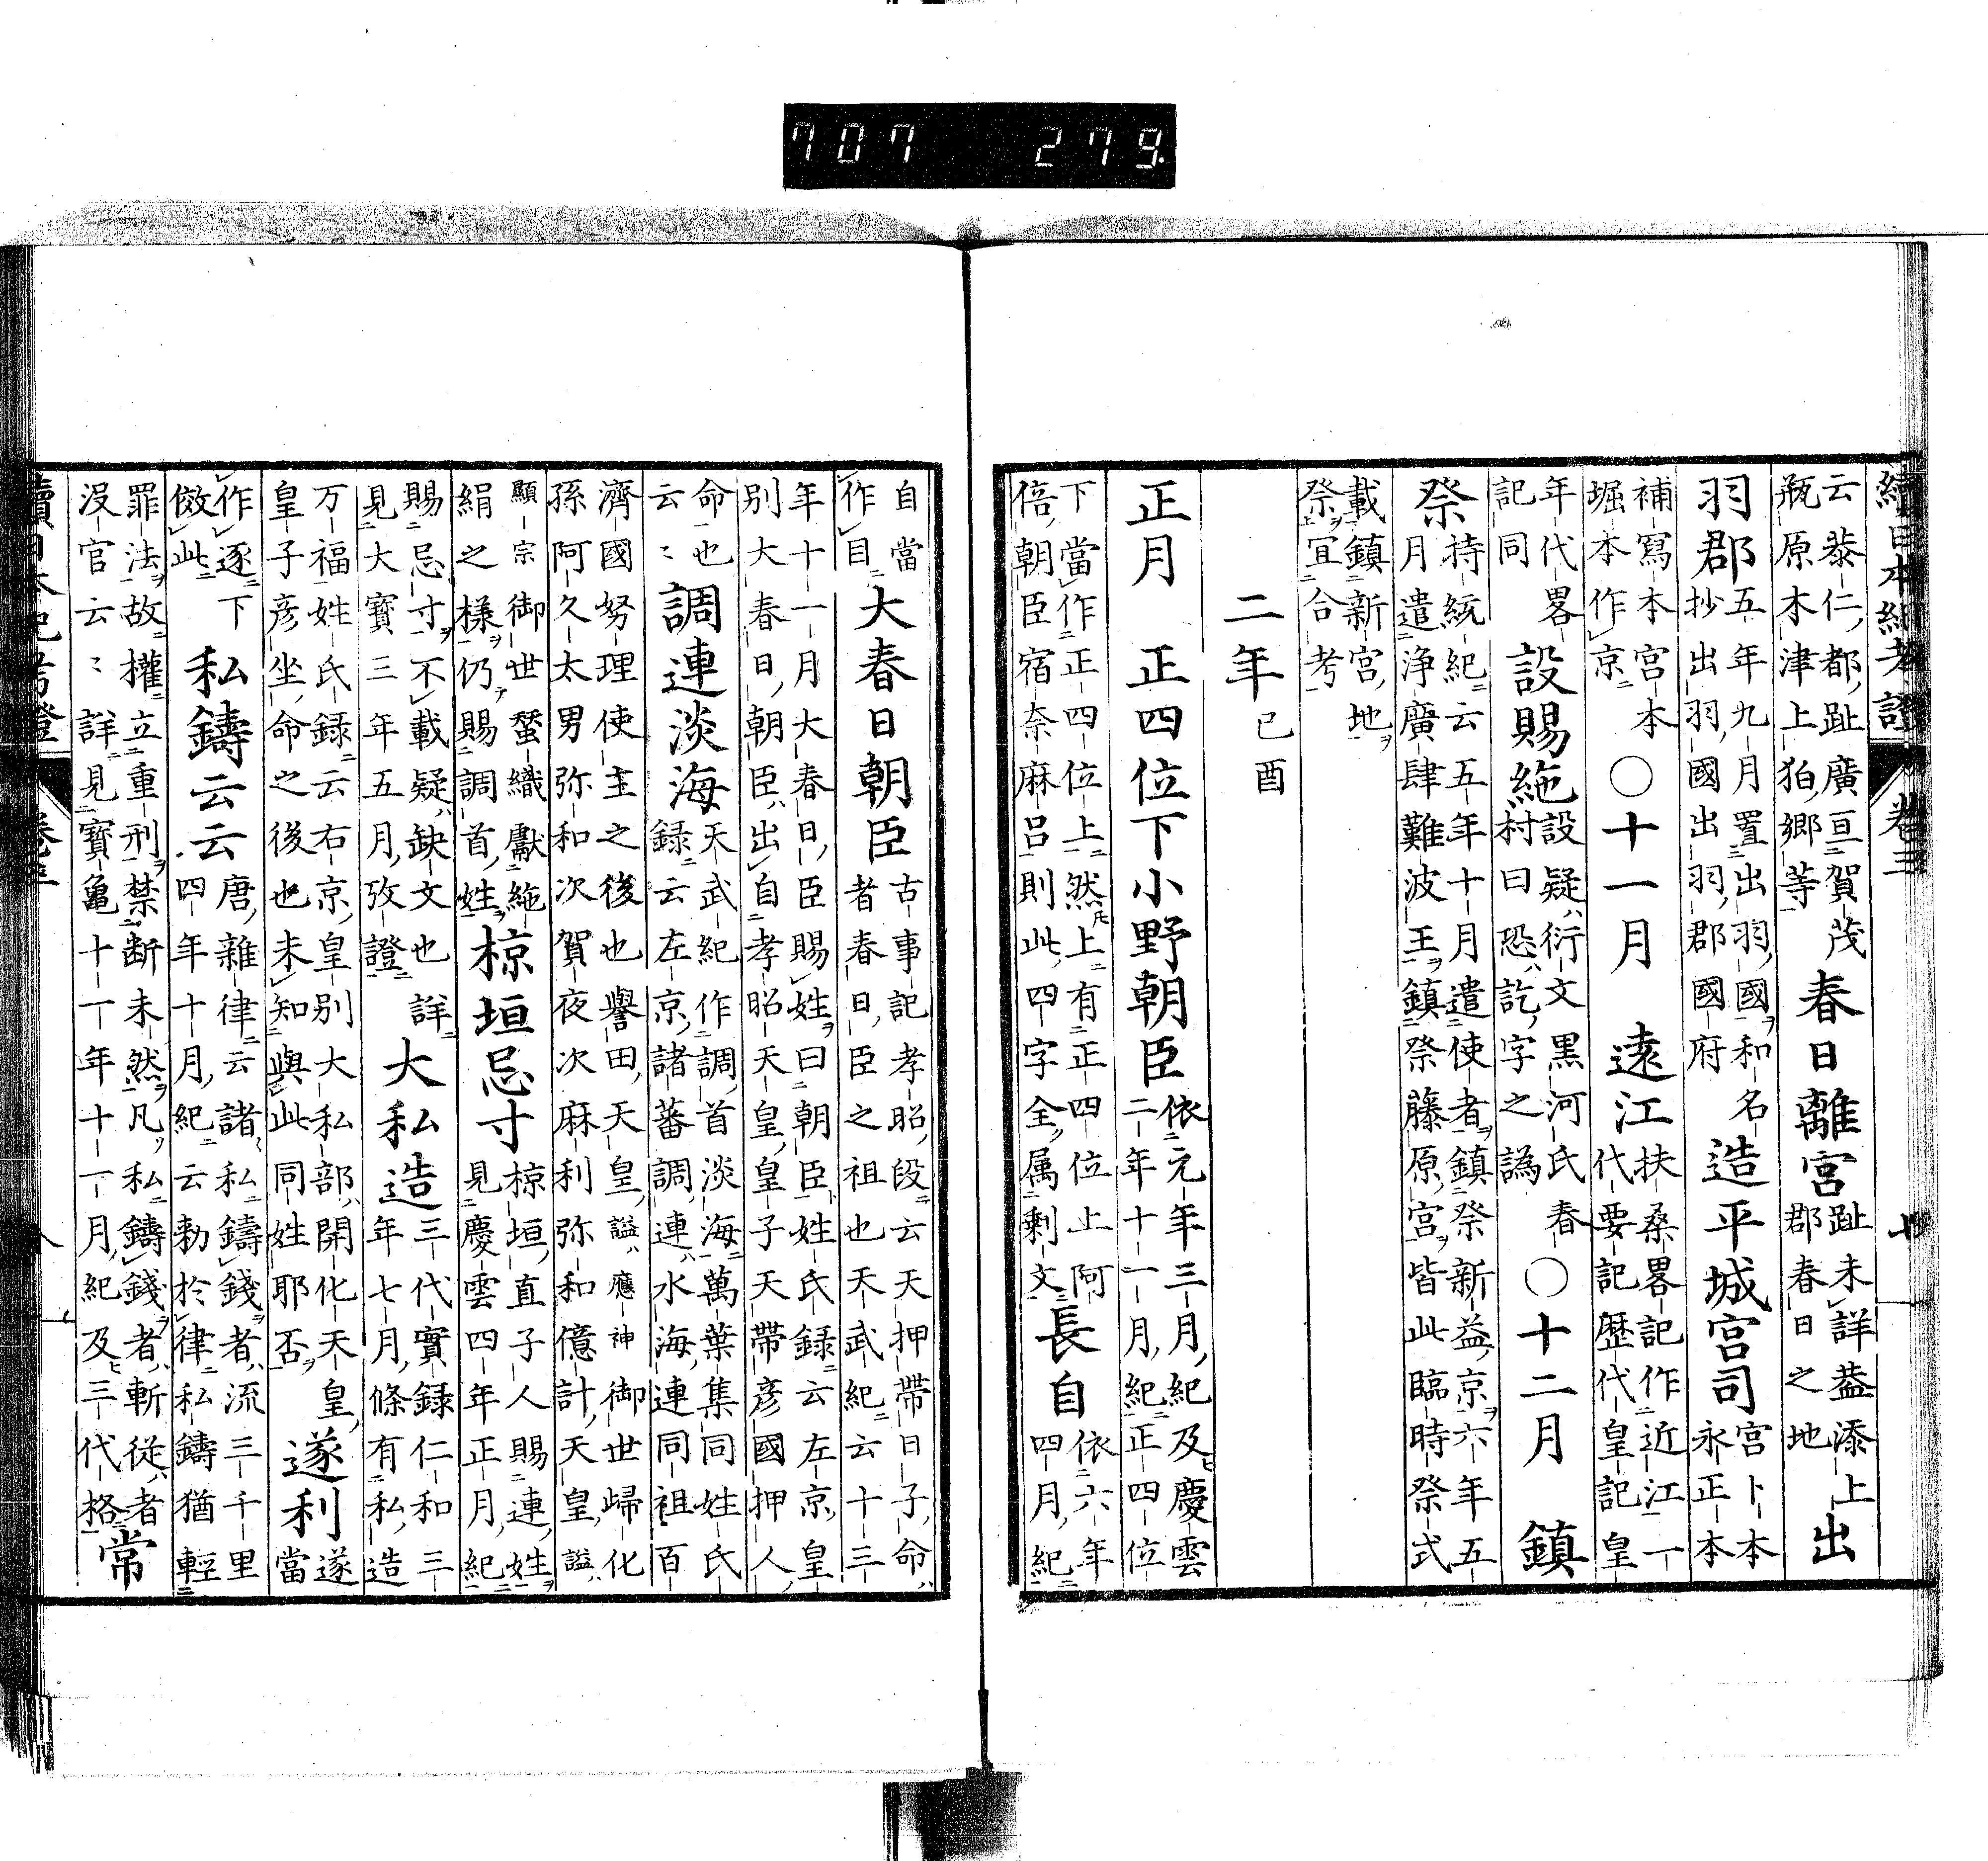 707 279.
續日本紀考證 卷三 七
云恭仁都趾廣亘賀茂
瓶原木津上狛郷等
春日離宮
趾未詳葢添上
郡春日之地
出
羽郡
五年九月置出羽國和名
抄出羽國出羽郡國府
造平城宮司
宮卜本
永正本
補寫本宮本
堀本作京
○十一月 遠江
扶桑畧記作近江一
代要記歴代皇記皇
年代畧
記同
設賜絁
設疑衍文黒河氏春
村曰恐訖字之譌
○十二月 鎮
祭
持統紀云五年十月遣使者鎮祭新益京六年五
月遣浄廣肆難波王鎮祭藤原宮皆此臨時祭式
載鎮新宮地
祭宜合考
二年己酉
正月 正四位下小野朝臣
依元年三月紀及慶雲
二年十一月紀正四位
下當作正四位上然上有正四位上阿
倍朝臣宿奈麻呂則此四字全属剰文
長自
依六年
四月紀
自當
作目
大春日朝臣
古事記孝昭段云天押帶日子命
者春日臣之祖也天武紀云十三
年十一月大春日臣賜姓曰朝臣姓氏録云左京皇
別大春日朝臣出自孝昭天皇皇子天帶彦國押人
命也
云〻
調連淡海
天武紀作調首淡海萬葉集同姓氏
録云左京諸蕃調連水海連同祖百
濟國努理使主之後也譽田天皇謚應神御世歸化
孫阿久太男弥和次賀夜次麻利弥和億計天皇謚
顯宗御世蚕織獻絁
絹之様仍賜調首姓
椋垣忌寸
椋垣直子人賜連姓
見慶雲四年正月紀
賜忌寸不載疑缺文也詳
見大寳三年五月攷證
大私造
三代實録仁和三
年七月條有私造
万福姓氏録云右京皇別大私部開化天皇
皇子彦坐命之後也未知與此同姓耶否
遂利
遂
當
作逐下
倣此
私鑄云云
唐雜律云諸私鑄錢者流三千里
四年十月紀云勅於律私鑄猶輕
罪法故權立重刑禁断未然凡私鑄錢者斬從者
没官云〻詳見寳亀十一年十一月紀及三代格
常
續日本紀考證 卷三 八